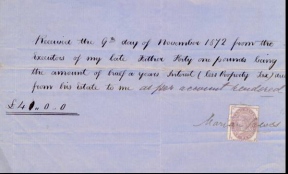 Received the 9th day of November 1872 from the
Executors of my late Father Forty one pounds being
the amount of half a years Interest (less Property Tax) due
from his Estate to me as per account rendered
£41..0.0
Maria